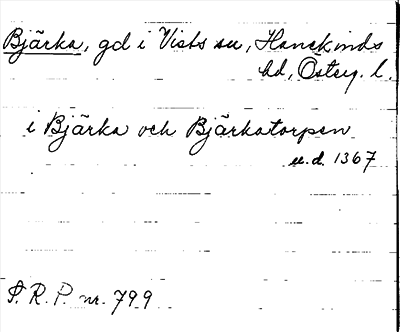 Bjärka, gd i Vists sn, Hanekinds
hd, Österg. l.
i Bjärka och Bjärkatorpen
u.d. 1367
S. R. P. nr. 799